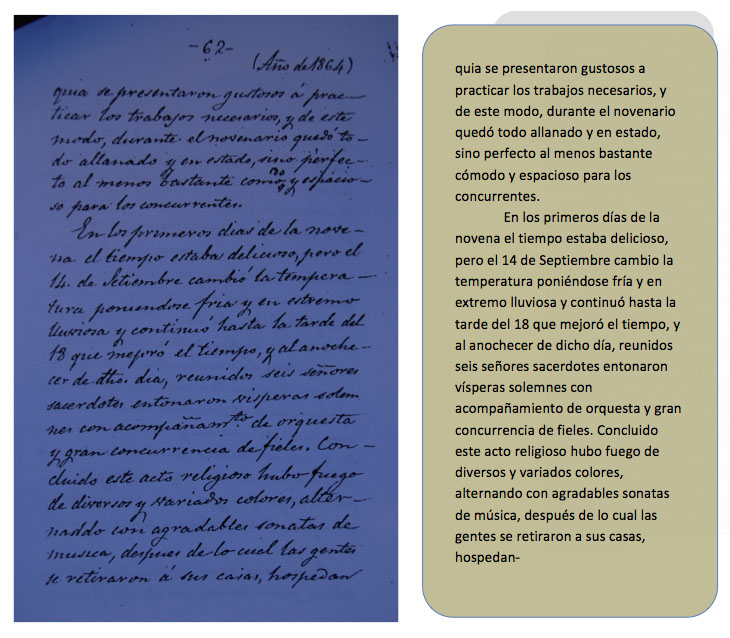 -62-
(Año de 1864)
quia se presentaron gustosos á prac-
ticar los trabajos necesarios, y de este
modo, durante el novenario quedó to-
do allanado y en estado, sino perfec-
to al menos bastante como
do
y espacio-
so para los concurrentes.
En los primeros dias de la nove-
na el tiempo estaba delicioso, pero el
14 de Setiembre cambió la tempera-
tura poniendose fria y en estremo
lluviosa y continuó hasta la tarde del
18 que mejoro el tiempo, y al anoche-
cer de dho. dia, reunidos seis señores
sacerdotes entonaron visperas solem
nes con acompañamto. de orquesta
y gran concurrencia de fieles. Con-
cluido este acto religioso hubo fuego
de diversos y variados colores, alter-
naddo con agradables sonatas de
musica, despues de lo cual las gentes
se retiraron á sus casas, hospedan
quia se presentaron gustosos a
practicar los trabajos necesarios, y
de este modo, durante el novenario
quedó todo allanado y en estado,
sino perfecto al menos bastante
cómodo y espacioso para los
concurrentes.
En los primeros días de la
novena el tiempo estaba delicioso,
pero el 14 de Septiembre cambio la
temperatura poniéndose fría y en
extremo lluviosa y continuó hasta la
tarde del 18 que mejoró el tiempo, y
al anochecer de dicho día, reunidos
seis señores sacerdotes entonaron
vísperas solemnes con
acompañamiento de orquesta y gran
concurrencia de fieles. Concluido
este acto religioso hubo fuego de
diversos y variados colores,
alternando con agradables sonatas
de música, después de lo cual las
gentes se retiraron a sus casas,
hospedan-